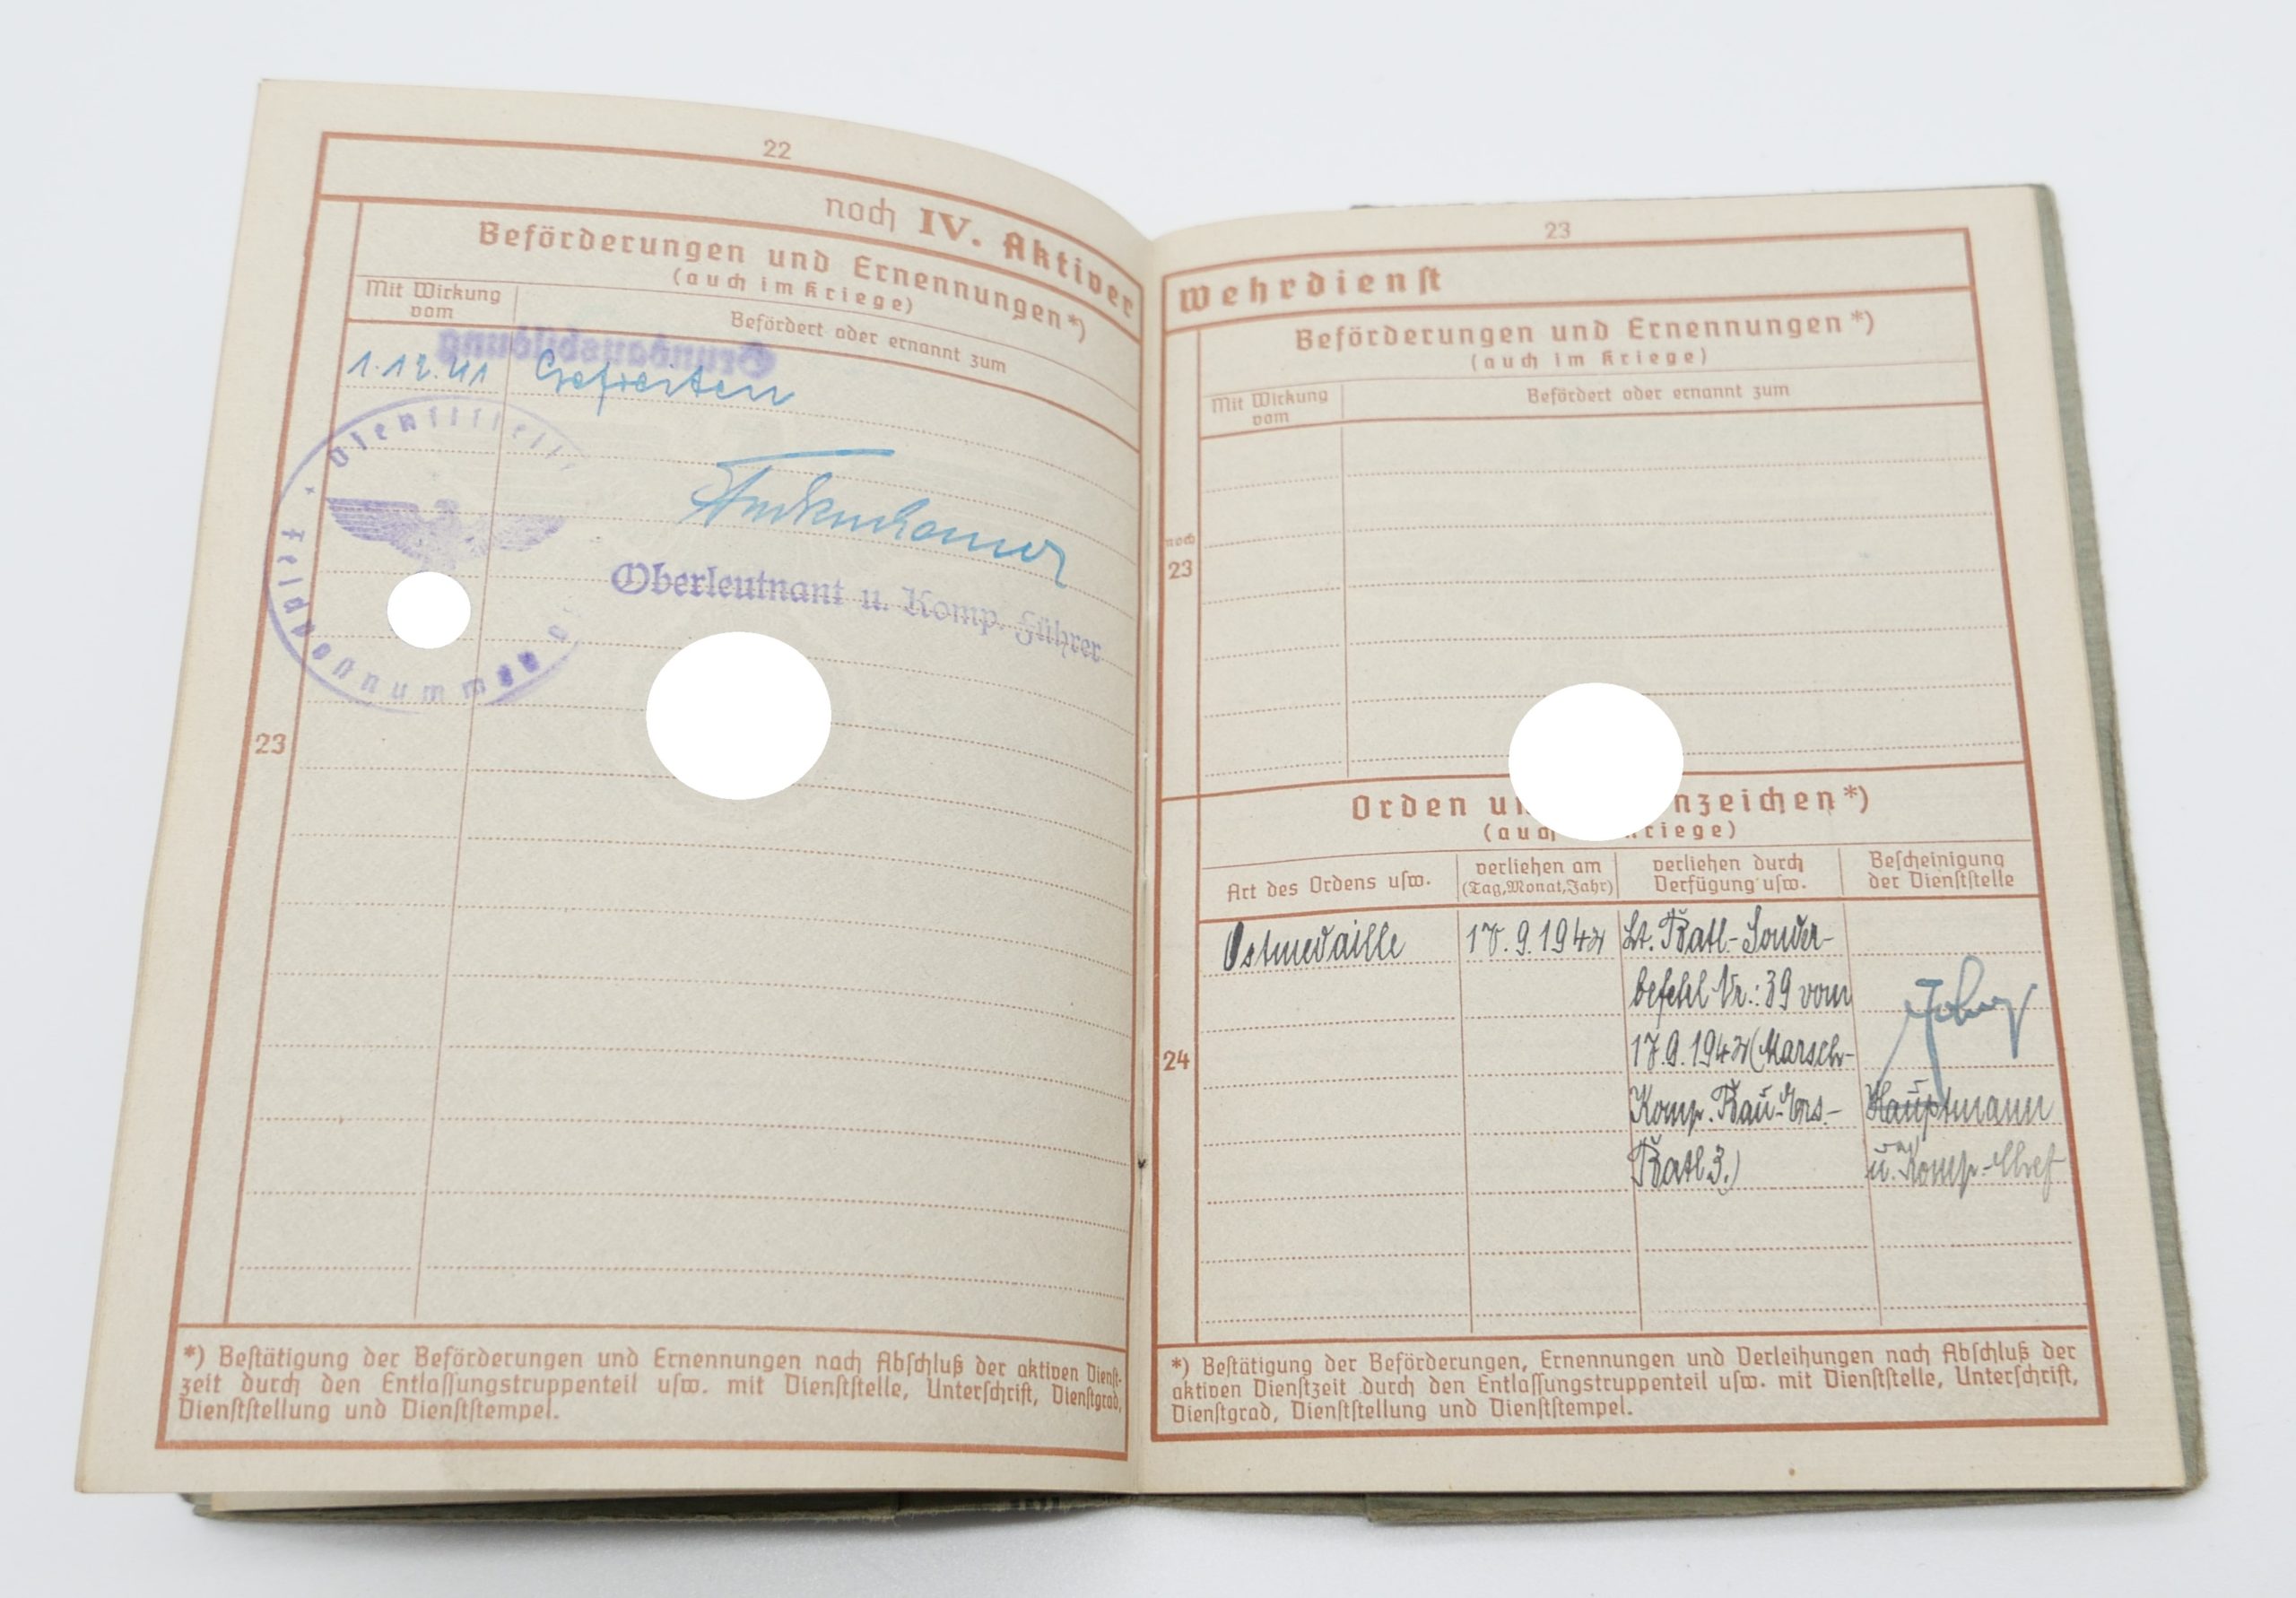 22
noch IV. Aktiver
Beförderungen und Ernennungen*)
(auch im Kriege)
Mit Wirkung
vom
Befördert oder ernannt zum
Grundausbildung
1.12.41 Gefreiten
Dienststelle
Feldpostnummer
Oberleutnant u. Komp. Führer
23
*) Bestätigung der Beförderungen und Ernennungen nach Abschluß der aktiven Dienst-
zeit durch den Entlassungstruppenteil usw. mit Dienststelle, Unterschrift, Dienstgrad,
Dienststellung und Dienststempel.
23
Wehrdienst
Beförderungen und Ernennungen*)
(auch im Kriege)
Mit Wirkung
vom
Befördert oder ernannt zum
noch
23
Orden u nzeichen*)
(auch Kriege)
Art des Ordens usw.
verliehen am
(Tag, Monat, Jahr)
verliehen durch
Verfügung usw.
Bescheinigung
der Dienststelle
Ostmedaille 17.9.1942 Lt. Batl.-Sonder-
befehl Nr.: 39 vom
17.9.1942 (Marsch-
Komp. Bau-Ers.- Hauptmann
Batl 3.) u. Komp.-Chef
24
*) Bestätigung der Beförderungen, Ernennungen und Verleihungen nach Abschluß der
aktiven Dienstzeit durch den Entlassungstruppenteil usw. mit Dienststelle, Unterschrift,
Dienstgrad, Dienststellung und Dienststempel.